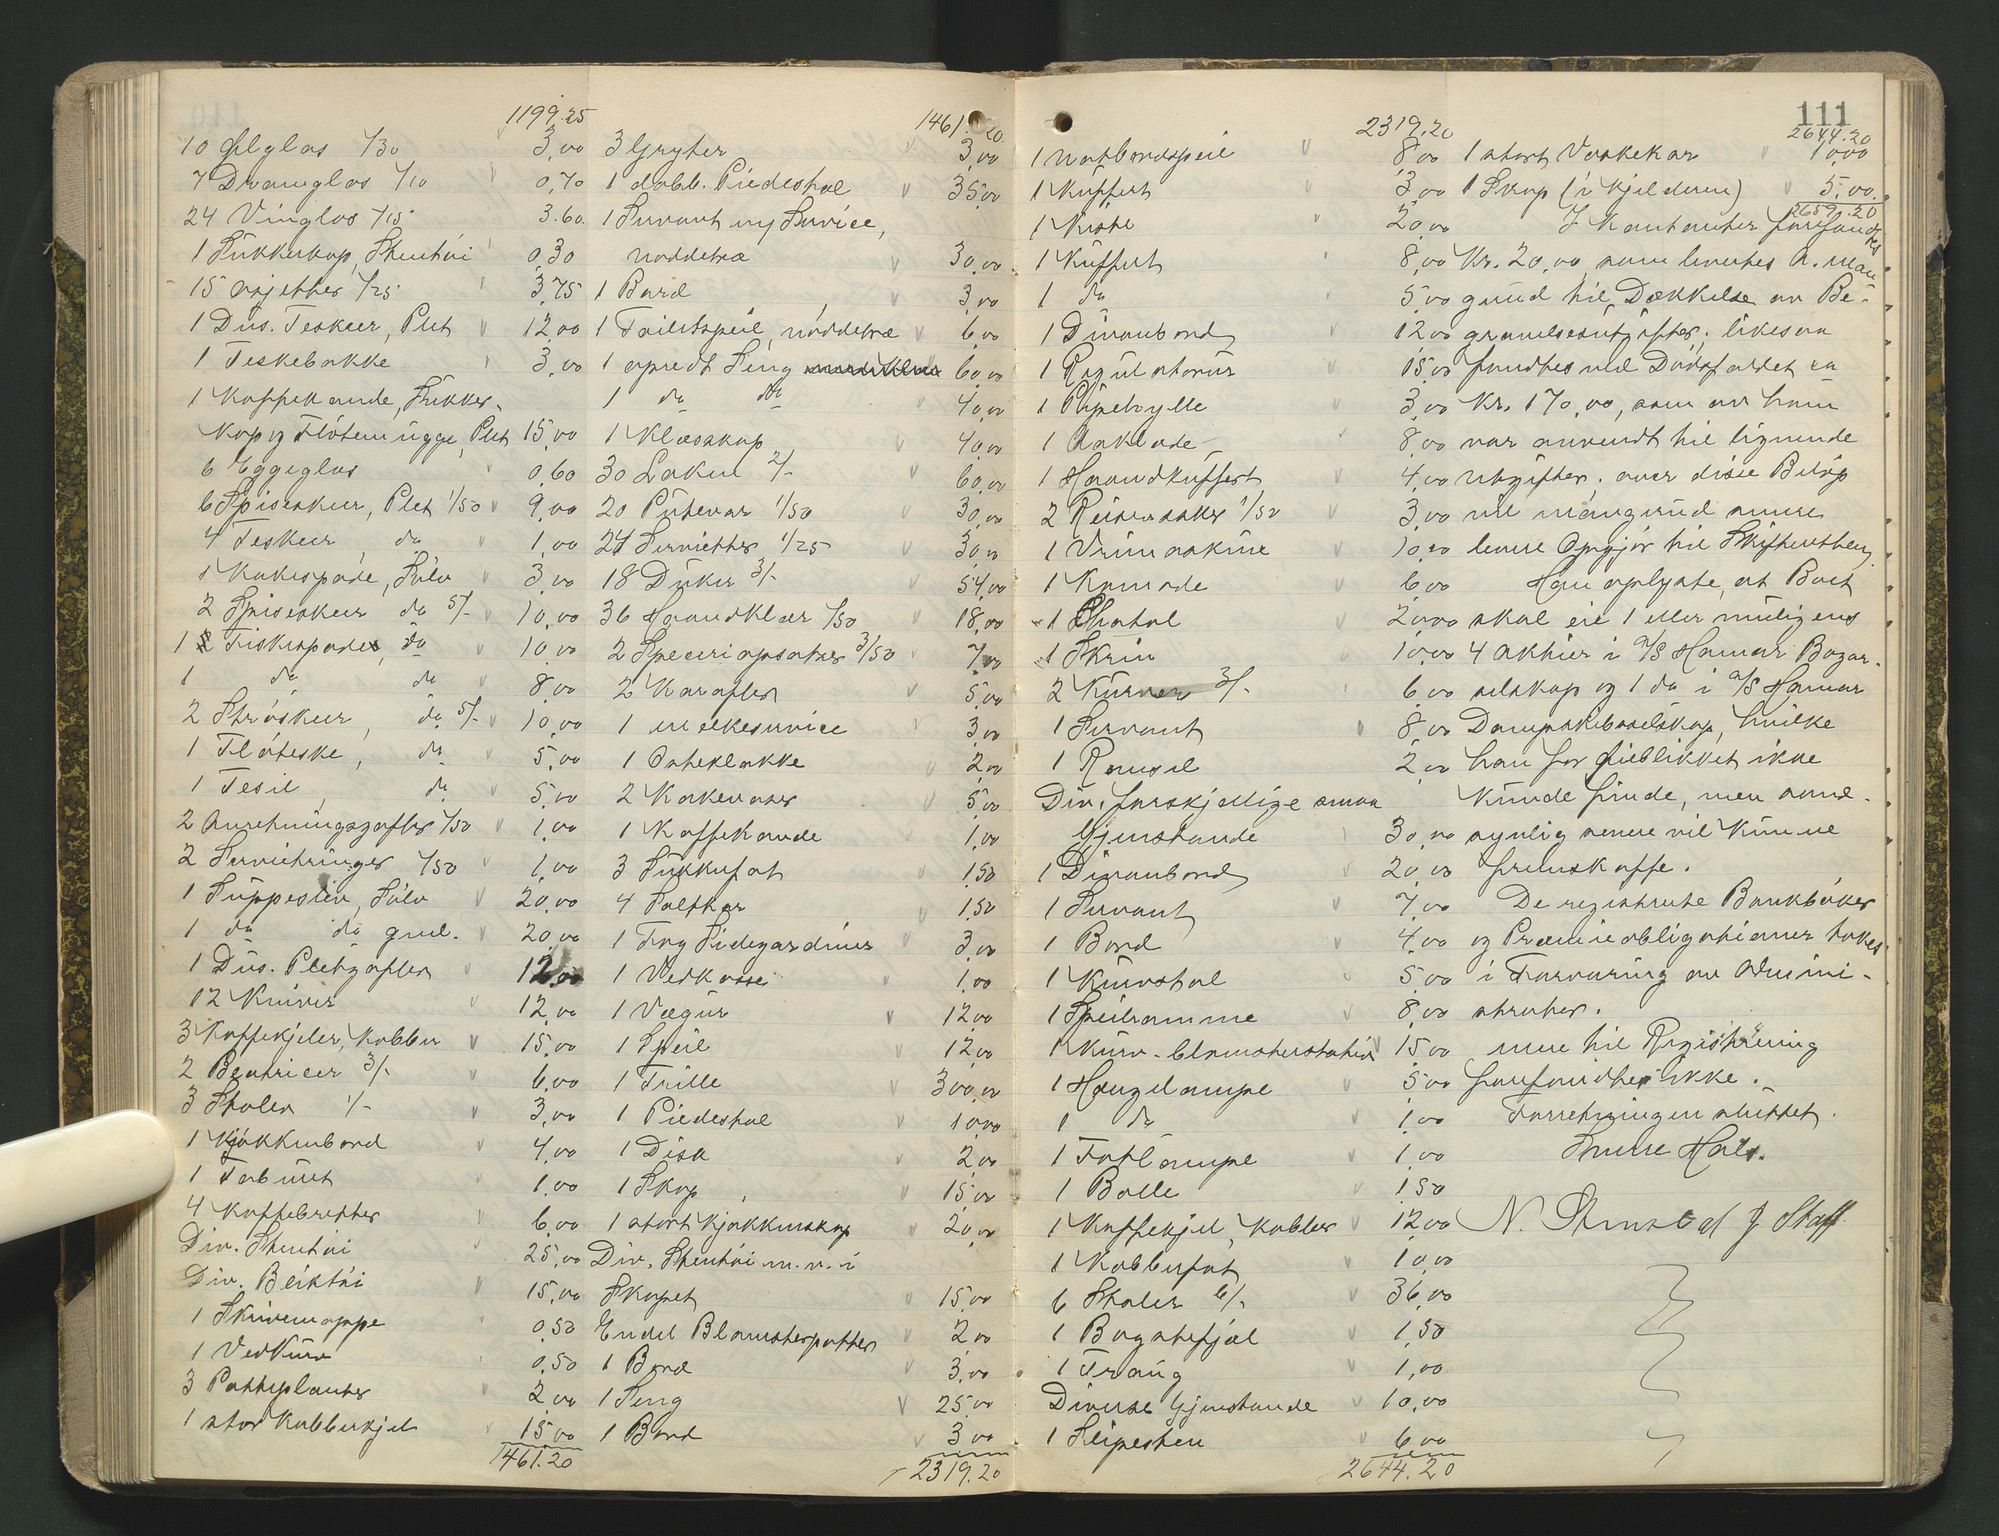 1199.25
10 Ølglas 1/30 3,00
7 Dramglas 1/10 0,70
24 Vinglas 1/15 3.60
1 Sukkerkop, Stentöi 0,30
15 Asjetter 1/25 3,75
1 Dus. Teskeer, Plet 12,00
1 Teskebakke 3,00
1 Kaffekande, Sukker-
kop og Flötemugge, Plet 15,00
6 Eggeglas 0,60
6 Spiseskeer, Plet 1/50 9,00
4 Teskeer, do 1,00
1 Kakespade, Sölv 3,00
2 Spiseskeer do 5/- 10,00
1 Fiskespade, do 10,00
1 do do 8,00
2 Ströskeer, do 5/- 10,00
1 Flöteske, do 5,00
1 Tesil, do 5,00
2 Anretningsgafler 1/50 1,00
2 Servietringer 1/50 1,00
1 Suppeslev, Sölv 20,00
1 do do gml. 20,00
1 Dus. Pletgafler 12,00
12 Kniver 12,00
3 Kaffekjeler, Kobber 15,00
2 Beatricer 3/- 6,00
3 Stoler 1/- 3,00
1 Kjökkenbord 4,00
1 Taburet 1,00
4 Kaffebretter 6,00
Div. Stentöi 25,00
Div. Bliktöi 15,00
1 Skrivemappe 0,50
1 Vedkurv 0,50
3 Potteplanter 2,00
1 stor Kobberkjel 15,00
1461.20
1461.20
3 Gryter 3,00
1 dobb. Piedestal 35,00
1 Servant m/ Service,
noddetræ 30,00
1 Bord 3,00
1 Toiletspeil, nöddetræ 6,00
1 opredt Seng 60,00
1 do do 40,00
1 Klæsskap 40,00
30 Laken 2/- 60,00
20 Putevar 1/50 30,00
24 Servietter 1/25 30,00
18 Duker 3/- 54,00
36 Haandklær 1/50 18,00
2 Speceriopsatser 3/50 7,00
2 Karafler 5,00
1 melkeservice 3,00
1 Osteklokke 2,00
2 Kakevaser 5,00
1 Kaffekande 1,00
3 Sukkerfat 1,50
4 Saltkar 1,50
1 Fag Sidegardiner 3,00
1 Vedkasse 1,00
1 Vægur 12,00
1 Speil 12,00
1 Trille 300,00
1 Piedestal 10,00
1 Disk 2,00
1 Skap, 15,00
1 stort Kjøkkenskap 20,00
Div. Stentöi m.v. i
Skapet 15,00
Endel Blomsterpotter 2,00
1 Bord 3,00
1 Seng 25,00
1 Bord 3,00
2319.20
2319.20
1 Natbordspeil 8,00
1 Kuffert 3,00
1 Kiste 20,00
1 Kuffert 8,00
1 do 5,00
1 Divanbord 12,00
1 Regulatorur 15,00
1 Pipehylle 3,00
1 Aaklæde 8,00
1 Haandkuffert 4,00
2 Reisesækker 1/50 3,00
1 Vrimaskine 10,00
1 Komode 6,00
1 Chatol 20,00
1 Skrin 10,00
2 Kurver 3/- 6,00
1 Servant 8,00
1 Romsil 2,00
Div. forskjellige smaa
Gjenstande 30,00
1 Divanbord 20,00
1 Servant 7,00
1 Bord 4,00
1 Kurvstol 5,00
1 Speilramme 8,00
1 Kurv-blomsterstativ 15,00
1 Hængelampe 5,00
1 do 1,00
1 Fotlampe 1,00
1 Bolle 1,50
1 Kaffekjel, Kobber 12,00
1 Kobberfat 10,00
6 Stoler 6/- 36,00
1 Bagstefjæl 1,50
1 Traug 1,00
Diverse Gjenstande 10,00
1 Slipesten 6,00
2644.20
111
2644.20
1 stort Vaskekar 10,00
1 Skap (i Kjelderen) 5,00
2659.20
I Kontanter forefandtes
Kr. 20,00 som levertes A. Man-
grud til Dækkelse av Be-
gravelsesutgifter, likesaa
fandtes ved Dödsfaldet ca
Kr. 170,00, som av ham
var anvendt til lignende
utgifter; over disse Belöp
vil Mangrud senere
levere Opgjör til Skifteretten.
Han oplyste, at Boet
skal eie 1 eller muligens
4 Aktier i A/S Hamar Bazar-
selskap og 1 do i A/S Hamar
Dampskibsselskap, hvilke
han for öieblikket ikke
Kunde finde, men sand-
synlig senere vil Kunne
fremskaffe.
De registrerte Bankböker
og Præmieobligationer tokes
i Forvaring av Admini-
strator.
mere til Registrering
forefandtes ikke.
Forretningen sluttet.
N. Stensrud J. Staff